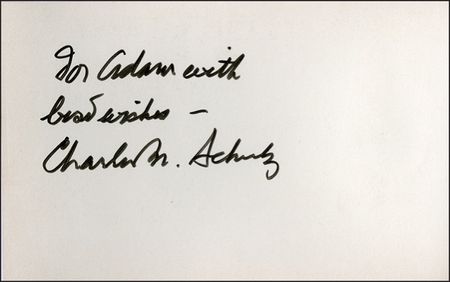 For Adam with
best wishes –
Charles M. Schulz